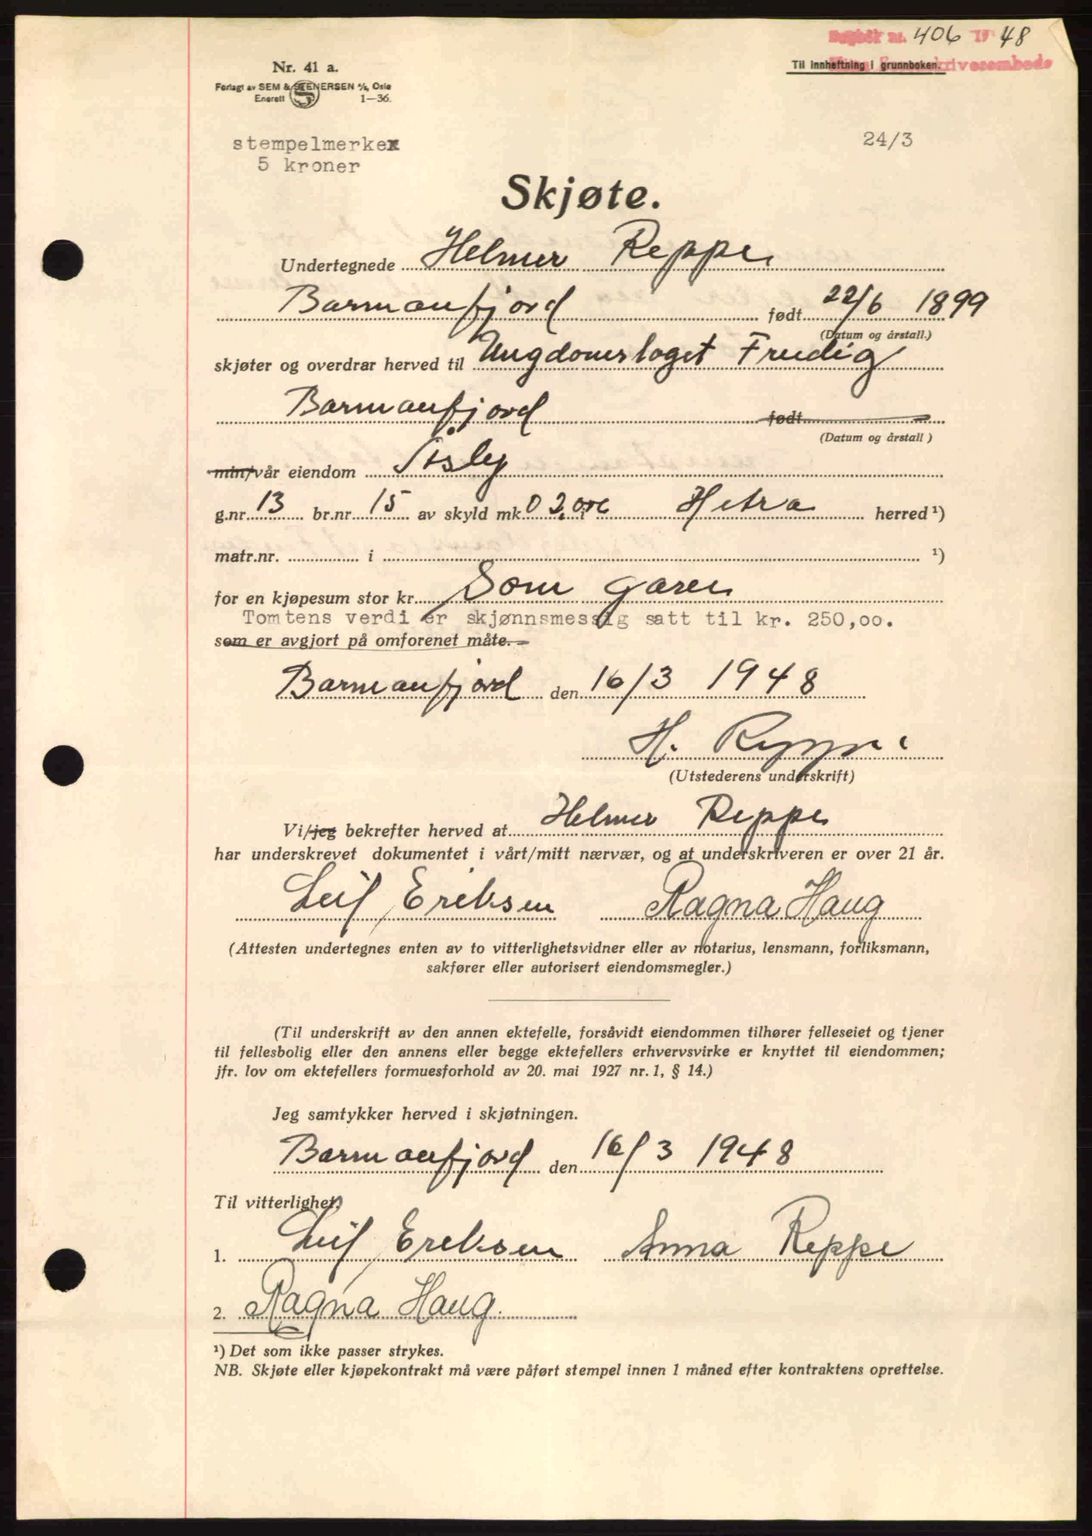 Dagbok nr. 406 19 48
Til innheftning i grunnboken.
skriverembede
Nr. 41 a.
Forlagt av SEM & STENERSEN A/S, Oslo
Enerett 1—36.
stempelmerke
5 kroner
24/3
Skjøte.
Undertegnede Helmer Reppe
Barmanfjord født 22/6 1899
(Datum og årstall.)
skjøter og overdrar herved til Ungdomslaget Freidig
Barmanfjord født
(Datum og årstall)
min/vår eiendom
g.nr. 13 br.nr. 15 av skyld mk. 0 02 øre i Hitra herred ¹)
matr.nr. i ¹)
for en kjøpesum stor kr. Som gave
Tomtens verdi er skjønnsmessig satt til kr. 250,oo.
som er avgjort på omforenet måte.
Barmanfjord den 16/3 1948
H. Reppe
(Utstederens underskrift)
Vi/jeg bekrefter herved at Helmer Reppe
har underskrevet dokumentet i vårt/mitt nærvær, og at underskriveren er over 21 år.
Leif Eriksen Ragna Haug
(Attesten undertegnes enten av to vitterlighetsvidner eller av notarius, lensmann, forliksmann,
sakfører eller autorisert eiendomsmegler.)
(Til underskrift av den annen ektefelle, forsåvidt eiendommen tilhører felleseiet og tjener
til fellesbolig eller den annens eller begge ektefellers erhvervsvirke er knyttet til eiendommen;
jfr. lov om ektefellers formuesforhold av 20. mai 1927 nr. 1, § 14.)
Jeg samtykker herved i skjøtningen.
Barmanfjord den 16/3 1948
Til vitterlighet:
1. Leif Eriksen Anna Reppe
2. Ragna Haug.
¹) Det som ikke passer strykes.
NB. Skjøte eller kjøpekontrakt må være påført stempel innen 1 måned efter kontraktens oprettelse.